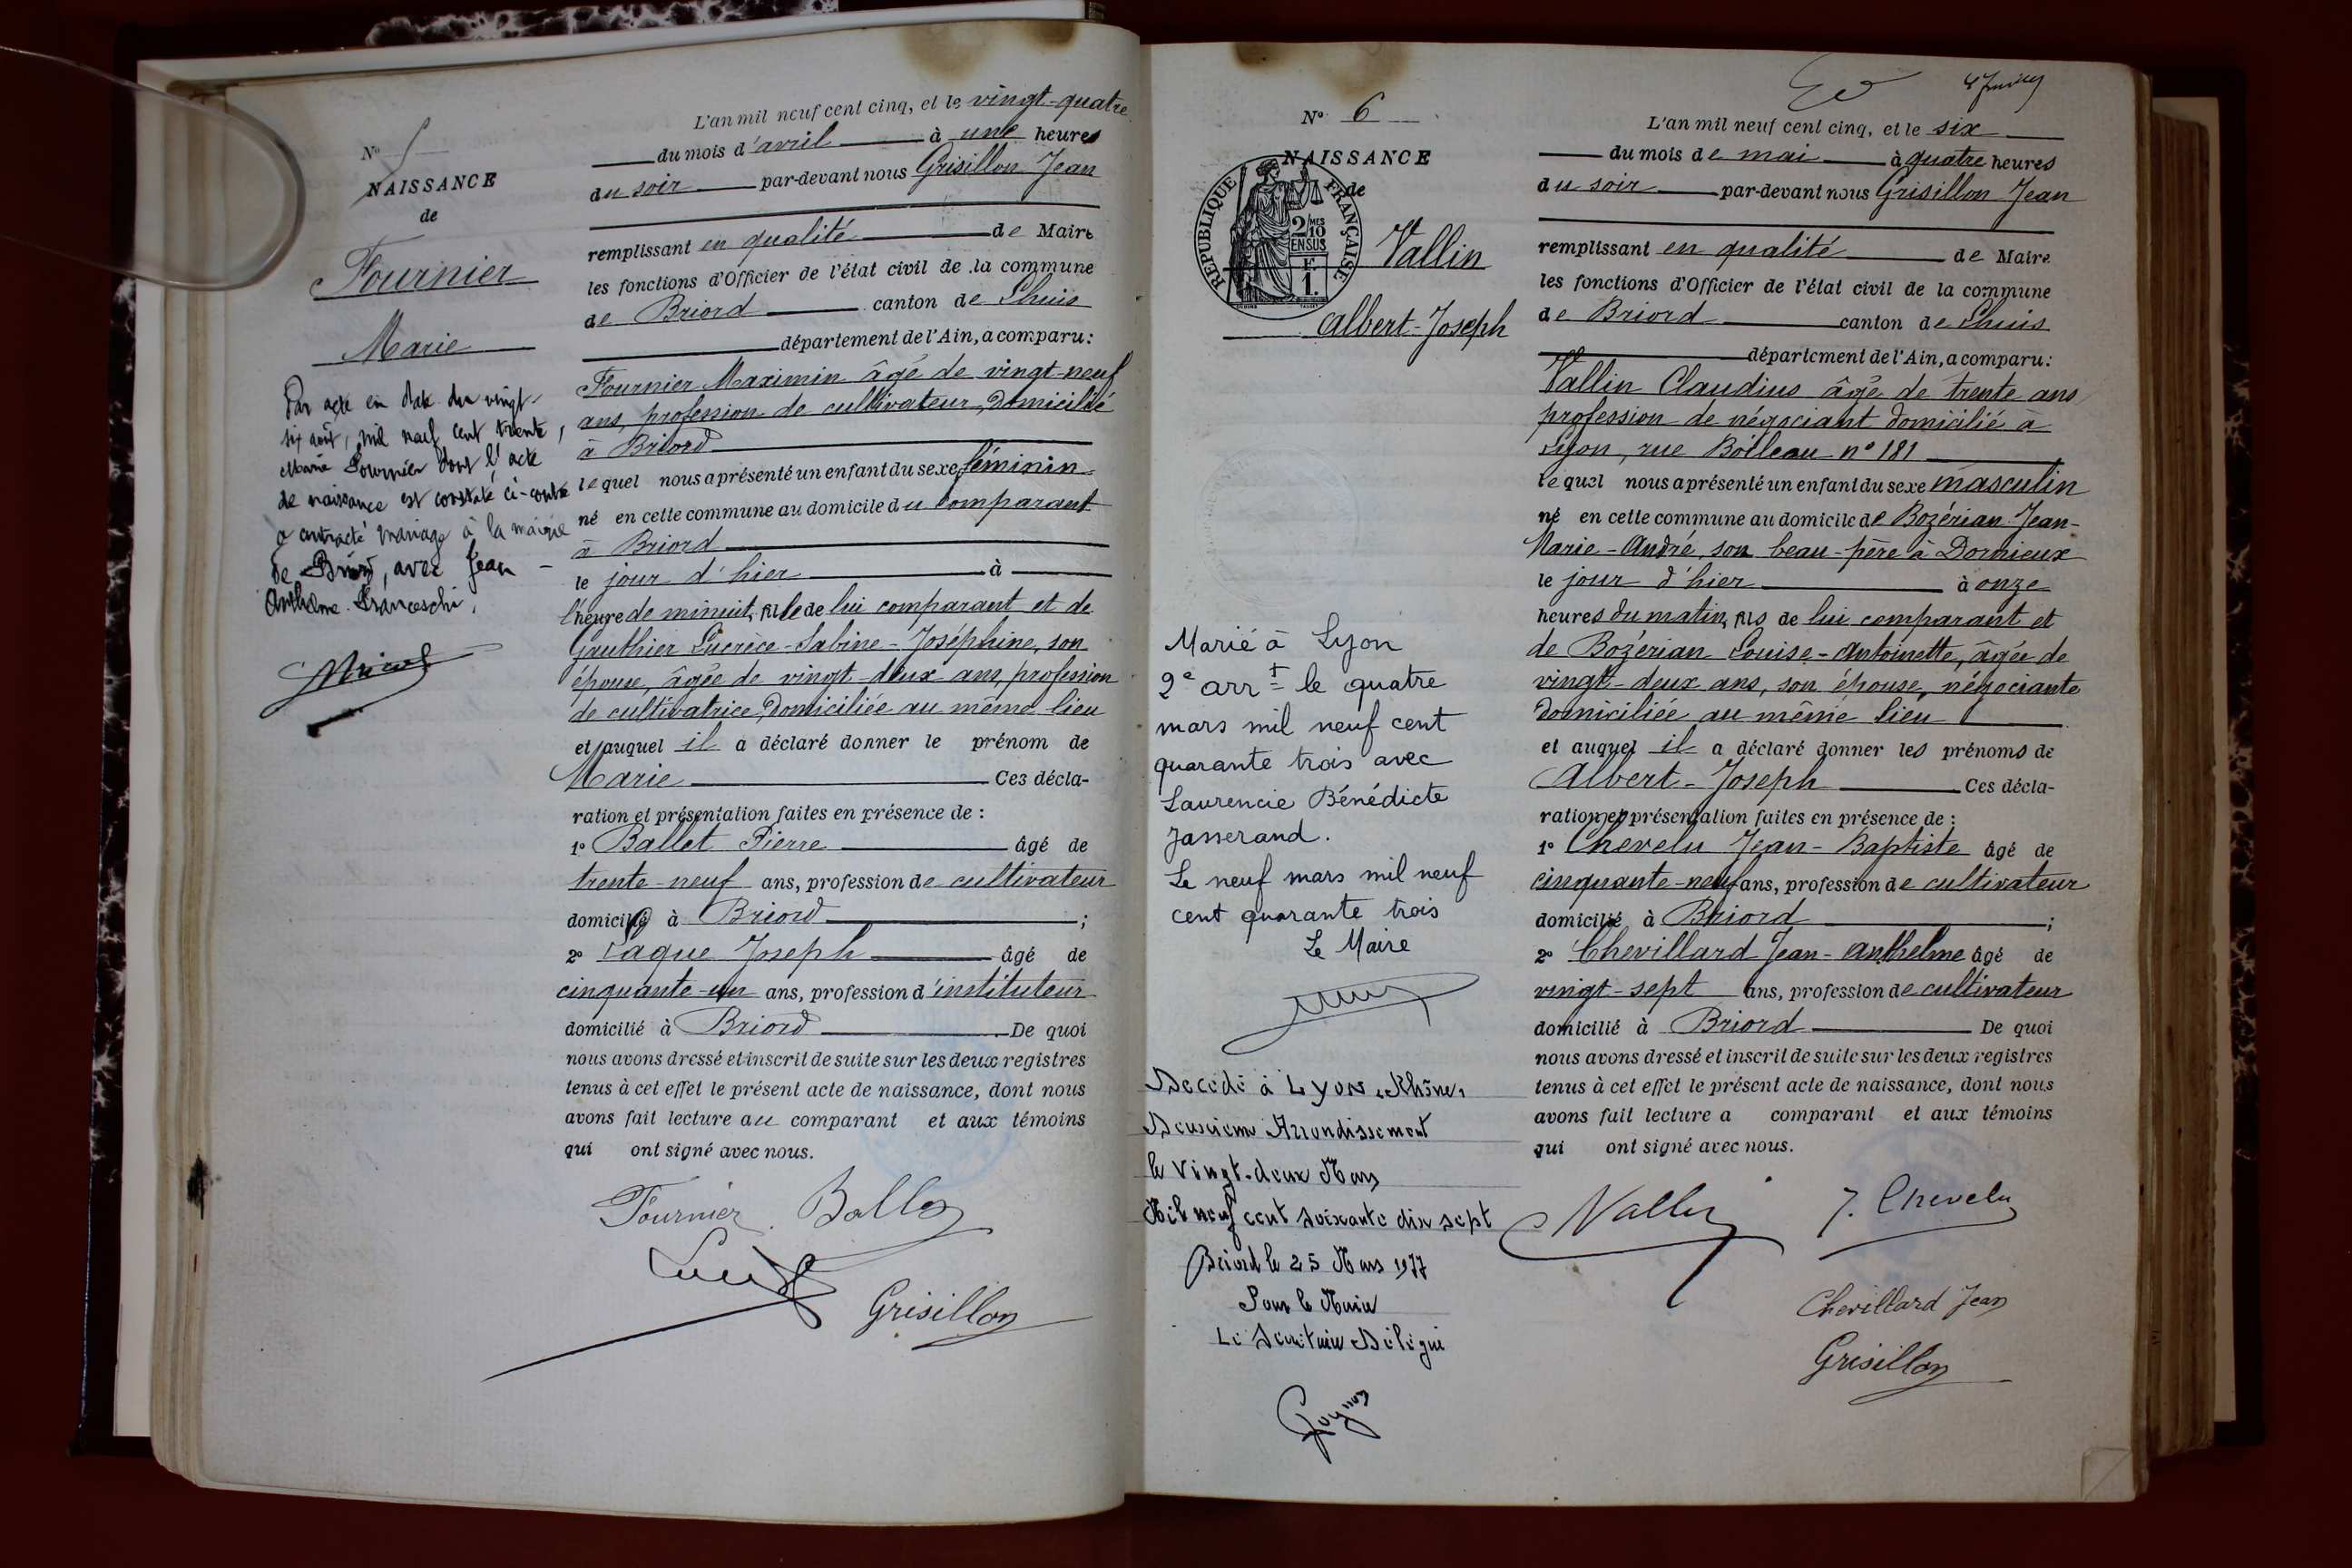 N° 5
NAISSANCE
de
Fournier
Marie
Par acte en date du vingt-
six août, mil neuf cent trente,
Marie Fournier dont l'acte
de naissance est constaté ci-contre
a contracté mariage à la mairie
de Briord, avec Jean -
Anthelme Franceschi.
L'an mil neuf cent cinq, et le vingt-quatre
du mois d'avril à une heures
du soir par-devant nous Grisillon Jean
remplissant en qualité de Maire
les fonctions d'Officier de l'état civil de la commune
de Briord canton de Lhuis
département de l'Ain, a comparu:
Fournier Maximin âgé de vingt-neuf
ans, profession de cultivateur, domicilié
à Briord
lequel nous a présenté un enfant du sexe féminin
né en cette commune au domicile du comparant
à Briord
le jour d'hier à
l'heure de minuit, fille de lui comparant et de
Gauthier Lucrèce-Sabine-Joséphine, son
épouse, âgée de vingt-deux ans, profession
de cultivatrice, domiciliée au même lieu
et auquel il a déclaré donner le prénom de
Marie Ces décla-
ration et présentation faites en présence de :
1° Ballet Pierre âgé de
trente-neuf ans, profession de cultivateur
domicilié à Briord ;
2° Laque Joseph âgé de
cinquante-un ans, profession d'instituteur
domicilié à Briord De quoi
nous avons dressé et inscrit de suite sur les deux registres
tenus à cet effet le présent acte de naissance, dont nous
avons fait lecture au comparant et aux témoins
qui ont signé avec nous.
Fournier Ballet
Grisillon
N° 6
NAISSANCE
de
REPUBLIQUE FRANÇAISE
2/10 MES
EN SUS
F.
1.
Vallin
Albert-Joseph
Marié à Lyon
2e arrt le quatre
mars mil neuf cent
quarante trois avec
Laurencie Bénédicte
Jasserand.
Le neuf mars mil neuf
cent quarante trois
Le Maire
Décédé à LYON (Rhône)
Deuxième Arrondissement
le Vingt-deux Mars
Mil neuf cent soixante dix sept
Briord le 25 Mars 1977
Pour le Maire
Le Secrétaire Délégué
L'an mil neuf cent cinq, et le six
du mois de mai à quatre heures
du soir par-devant nous Grisillon Jean
remplissant en qualité de Maire
les fonctions d'Officier de l'état civil de la commune
de Briord canton de Lhuis
département de l'Ain, a comparu:
Vallin Claudius âgé de trente ans
profession de négociant domicilié à
Lyon, rue Boileau n° 181
lequel nous a présenté un enfant du sexe masculin
né en cette commune au domicile de Bozérian Jean-
Marie-André, son beau-père à Dornieux
le jour d'hier à onze
heures du matin, fils de lui comparant et
de Bozérian Louise-Antoinette, âgée de
vingt-deux ans, son épouse, négociante
domiciliée au même lieu
et auquel il a déclaré donner les prénoms de
Albert-Joseph Ces décla-
ration et présentation faites en présence de :
1° Chevelu Jean-Baptiste âgé de
cinquante-neuf ans, profession de cultivateur
domicilié à Briord ;
2° Chevillard Jean-Anthelme âgé de
vingt-sept ans, profession de cultivateur
domicilié à Briord De quoi
nous avons dressé et inscrit de suite sur les deux registres
tenus à cet effet le présent acte de naissance, dont nous
avons fait lecture a comparant et aux témoins
qui ont signé avec nous.
Vallin J. Chevelu
Chevillard Jean
Grisillon